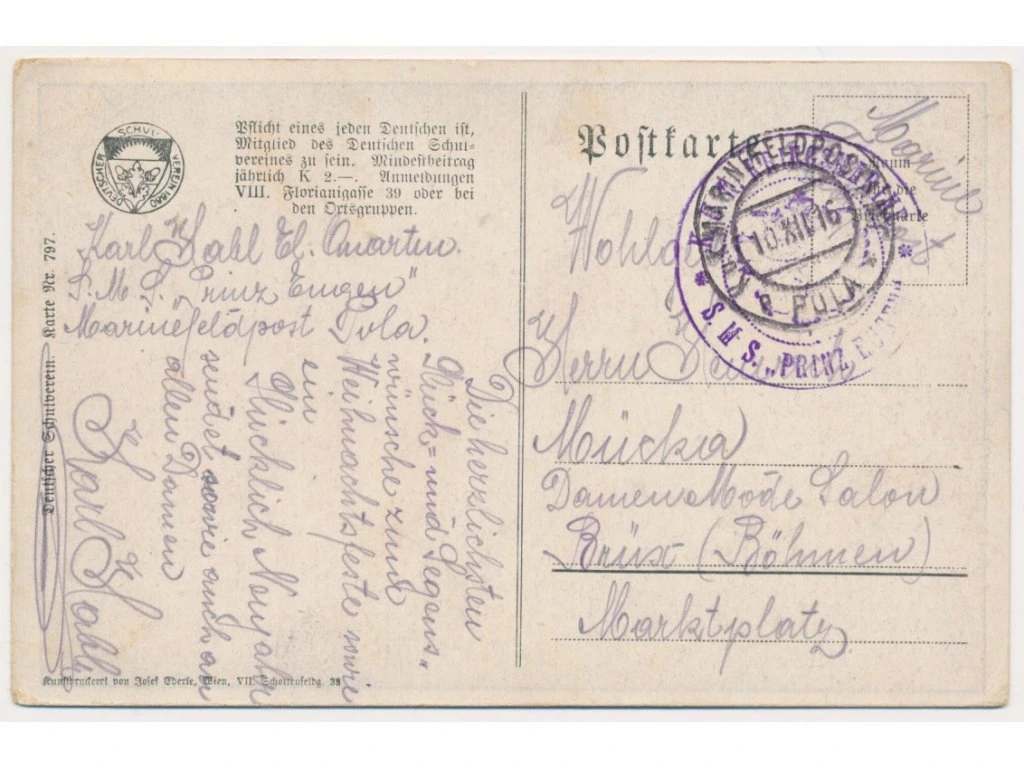 DEUTSCHER SCHUL-VEREIN 1880
Pflicht eines jeden Deutschen ist,
Mitglied des Deutschen Schul-
vereines zu sein. Mindestbeitrag
jährlich K 2.—. Anmeldungen
VIII. Florianigasse 39 oder bei
den Ortsgruppen.
Karl Kahl El. Quarten.
S.M.S. „Prinz Eugen"
Marinefeldpost Pola.
Die herzlichsten
Glück= und Segens-
wünsche zum
Weihnachtsfeste sowie
ein
Glücklich Neujahr
sendet sowie auch an
allen Damen
Karl Kahl
Deutscher Schulverein. Karte Nr. 797.
Kunstdruckerei von Josef Eberle, Wien, VII. Schottenfeldg. 38
Postkarte
Marine
K.u.K. MARINEFELDPOSTAMT
10.XII.16
e POLA
S.M.S. „PRINZ EUGEN"
Herrn
Mücka
Damen Mode Salon
Brüx (Böhmen)
Marktplatz.